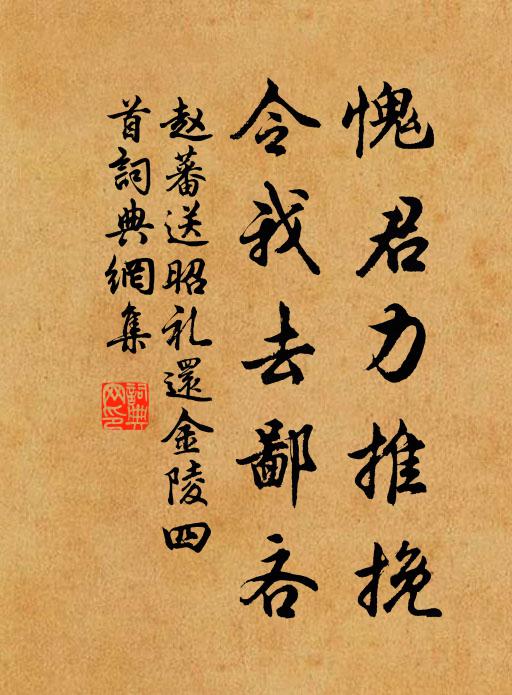 愧君力推挽
令我去鄙吝
赵蕃送昭礼還金陵四
首詞典網集
詞典网印